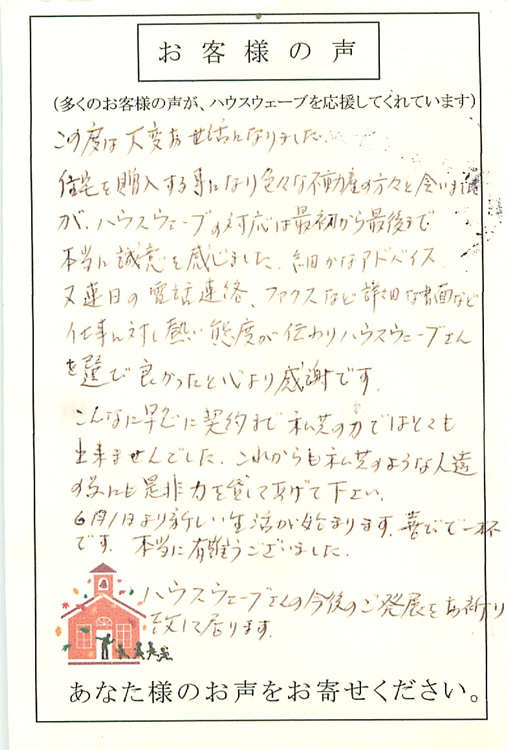 お客様の声
(多くのお客様の声が、ハウスウェーブを応援してくれています)
この度は大変お世話になりました
住宅を購入する事になり色々な不動産の方々と会いました
が、ハウスウェーブの対応は最初から最後まで
本当に誠意を感じました。細かなアドバイス
又連日の電話連絡、ファクスなど詳細な書面など
仕事に対し熱い態度が伝わりハウスウェーブさん
を選び良かったと心より感謝です。
こんなに早急に契約まで私共の力ではとても
出来ませんでした。これからも私共のような人達
の為にも是非力を貸してあげて下さい。
6月1日より新しい生活が始まります。喜びで一杯
です。本当に有難うございました。
ハウスウェーブさんの今後のご発展をお祈り
致して居ります。
あなた様のお声をお寄せください。